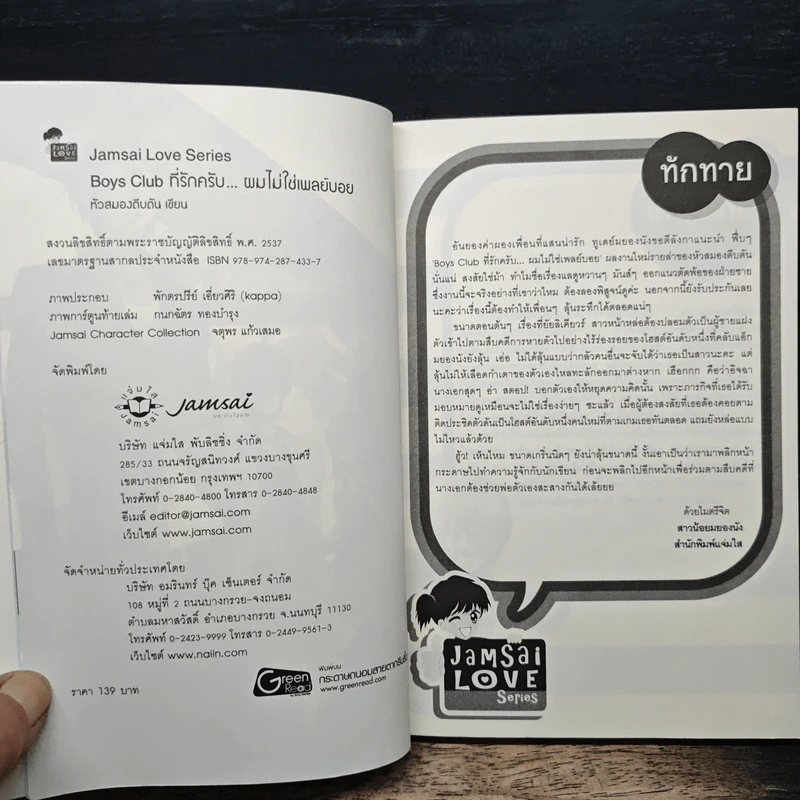 Jamsai Love Series
Boys Club ที่รักครับ... ผมไม่ใช่เพลย์บอย
หัวสมองตีบตัน เขียน
สงวนลิขสิทธิ์ตามพระราชบัญญัติลิขสิทธิ์ พ.ศ. 2537
เลขมาตรฐานสากลประจำหนังสือ ISBN 978-974-287-433-7
ภาพประกอบ พักตรปรีย์ เอี่ยวศิริ (kappa)
ภาพการ์ตูนท้ายเล่ม กนกฉัตร ทองบำรุง
Jamsai Character Collection จตุพร แก้วเสมอ
จัดพิมพ์โดย
แจ่มใส
Jamsai
Jamsai
บริษัท แจ่มใส พับลิชชิ่ง จำกัด
285/33 ถนนจรัญสนิทวงศ์ แขวงบางขุนศรี
เขตบางกอกน้อย กรุงเทพฯ 10700
โทรศัพท์ 0-2840-4800 โทรสาร 0-2840-4848
อีเมล์ editor@jamsai.com
เว็บไซต์ www.jamsai.com
จัดจำหน่ายทั่วประเทศโดย
บริษัท อมรินทร์ บุ๊ค เซ็นเตอร์ จำกัด
108 หมู่ที่ 2 ถนนบางกรวย-จงถนอม
ตำบลมหาสวัสดิ์ อำเภอบางกรวย จ.นนทบุรี 11130
โทรศัพท์ 0-2423-9999 โทรสาร 0-2449-9561-3
เว็บไซต์ www.naiin.com
Green Read
พิมพ์บน
กระดาษถนอมสายตากรีนรี้ด
www.greenread.com
ราคา 139 บาท
ทักทาย
อันยองค่าผองเพื่อนที่แสนน่ารัก ทูเดย์มยองนังขอตีลังกาแนะนำ ฟื่บๆ
'Boys Club ที่รักครับ... ผมไม่ใช่เพลย์บอย' ผลงานใหม่รายล่าของหัวสมองตีบตัน
นั่นแน่ สงสัยใช่ม้า ทำไมชื่อเรื่องแลดูหวานๆ มันส์ๆ ออกแนวตัดพ้อของฝ่ายชาย
ซึ่งงานนี้จะจริงอย่างที่เขาว่าไหม ต้องลองพิสูจน์ดูค่ะ นอกจากนี้ยังรับประกันเลย
นะคะว่าเรื่องนี้ต้องทำให้เพื่อนๆ ลุ้นระทึกได้ตลอดแน่ๆ
ขนาดตอนต้นๆ เรื่องที่ยัยลิเดียร์ สาวหน้าหล่อต้องปลอมตัวเป็นผู้ชายแฝง
ตัวเข้าไปตามสืบคดีการหายตัวไปอย่างไร้ร่องรอยของโฮสต์อันดับหนึ่งที่คลับแอ๊ก
มยองนังยังลุ้น เอ่อ ไม่ได้ลุ้นแบบว่ากลัวคนอื่นจะจับได้ว่าเธอเป็นสาวนะคะ แต่
ลุ้นไม่ให้เลือดกำเดาของตัวเองไหลทะลักออกมาต่างหาก เฮือกกก คือว่าอิจฉา
นางเอกสุดๆ อ่า สตอป! บอกตัวเองให้หยุดความคิดนั้น เพราะภารกิจที่เธอได้รับ
มอบหมายดูเหมือนจะไม่ใช่เรื่องง่ายๆ ซะแล้ว เมื่อผู้ต้องสงสัยที่เธอต้องคอยตาม
ติดประชิดตัวดันเป็นโฮสต์อันดับหนึ่งคนใหม่ที่ตามเกมเธอทันตลอด แถมยังหล่อแบบ
ไม่ไหวแล้วด้วย
ฮู้ว! เห็นไหม ขนาดเกริ่นนิดๆ ยังน่าลุ้นขนาดนี้ งั้นเอาเป็นว่าเรามาพลิกหน้า
กระดาษไปทำความรู้จักกับนักเขียน ก่อนจะพลิกไปอีกหน้าเพื่อร่วมตามสืบคดีที่
นางเอกต้องช่วยพ่อตัวเองสะสางกันได้เล้ยยย
ด้วยไมตรีจิต
สาวน้อยมยองนัง
สำนักพิมพ์แจ่มใส
Jamsai
LOVE
Series